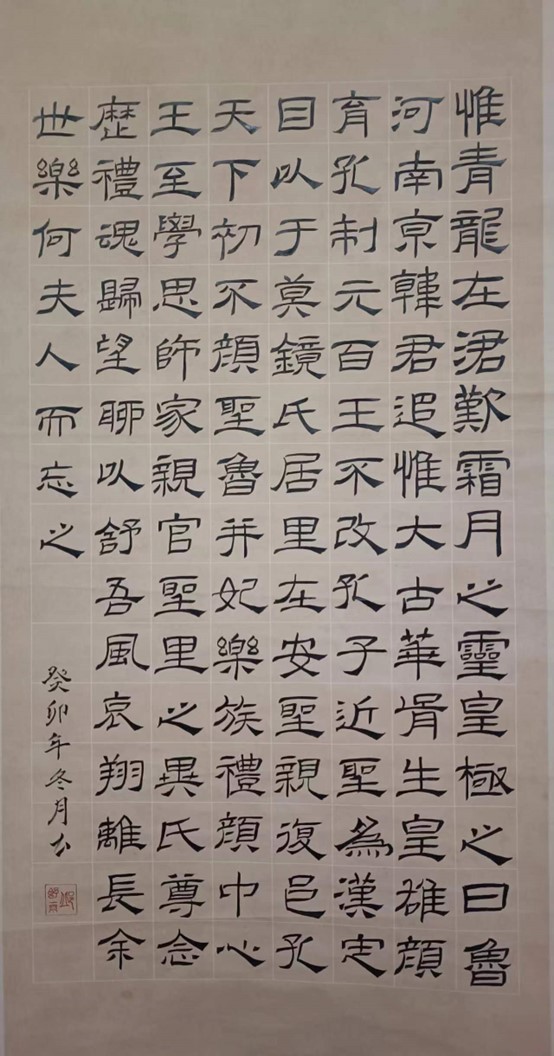 惟青龍在涒歎霜月之靈皇極之日魯
河南京韓君追惟大古華胥生皇雄顏
育孔制元百王不改孔子近聖為漢定
目以于莫鏡氏居里在安聖親復邑孔
天下初不顏聖魯并妃樂族禮顏中心
王至學思師家親官聖里之異氏尊念
歷禮魂歸望聊以舒吾風哀翔離長余
世樂何夫人而忘之
癸卯年冬月